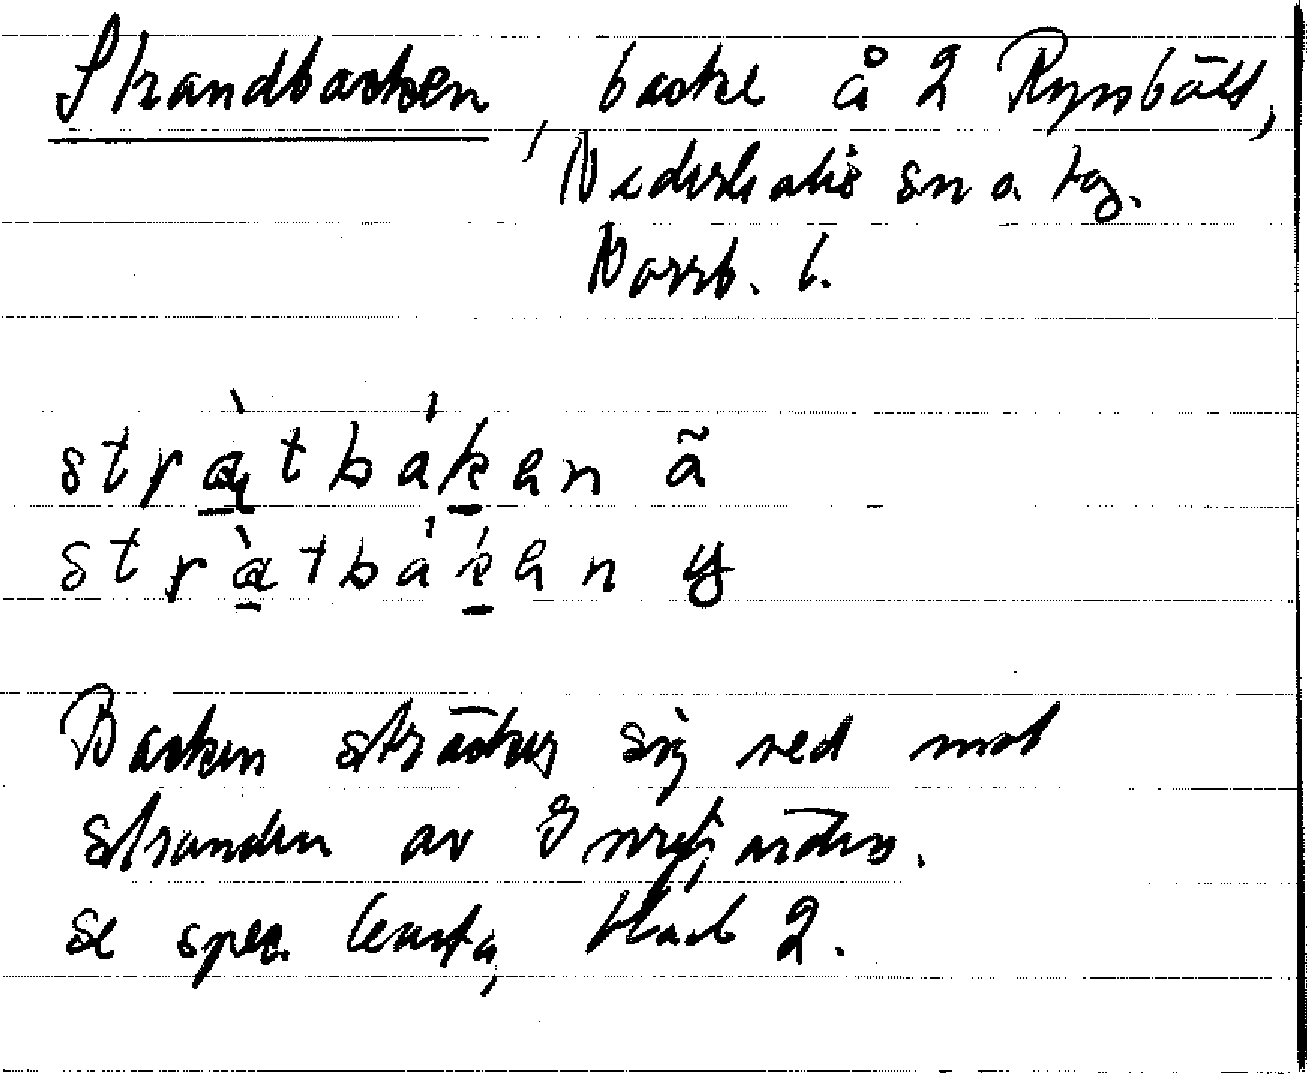 Strandbacken, backe å 2 Rynbält,
Nederkalix sn o tg.
Norrb. l.
stràtbáken ã
stràtbáken y
Backen sträcker sig ned mot
stranden av Innrefjärden.
Se spec karta, blad 2.